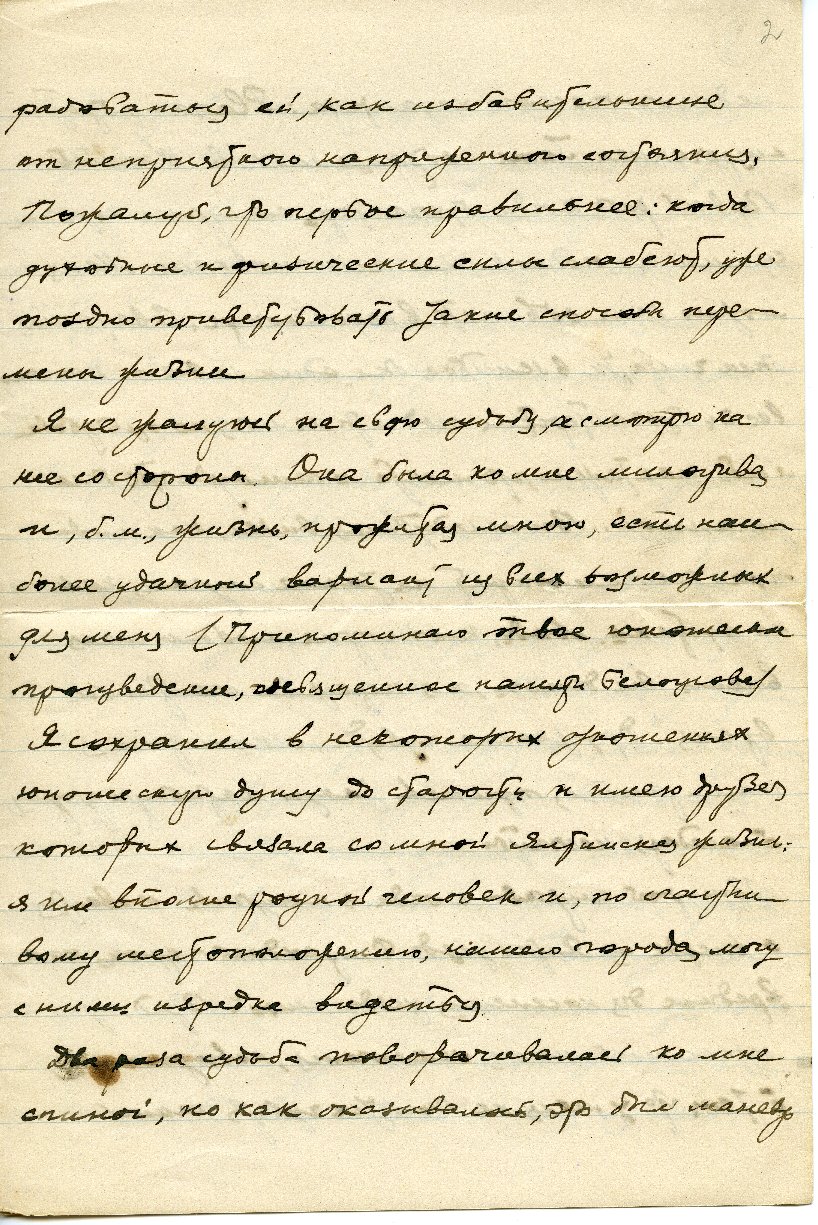 2
радоваться ей, как избавительнице
от неприятного напряженного состояния.
Пожалуй, что первое правильнее: когда
духовные и физические силы слабеют, уже
поздно приветствовать такие способы пере-
мены жизни
Я не жалуюсь на свою судьбу, а смотрю на
нее со стороны. Она была ко мне милостива
и, б.м., жизнь, прожитая мною, есть наи-
более удачный вариант из всех возможных
для меня (Припоминаю твое юношеское
произведение, посвященное памяти Белоусова)
Я сохранил в некоторых отношениях
юношескую душу до старости и имею друзей
которых связала со мной Ялтинская жизнь:
я им вполне родной человек и, по счастли-
вому местоположению, нашего города, могу
с ними изредка видеться
Два раза судьба поворачивалась ко мне
спиной, но как оказывалось, это был маневр